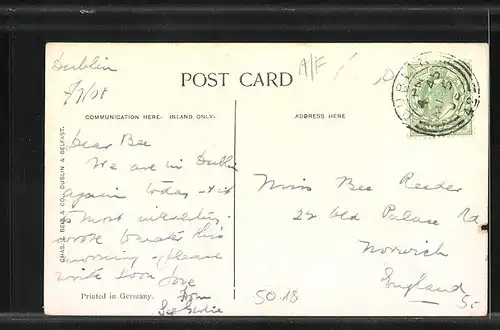 Dublin
5/7/08
A/F
POST CARD
COMMUNICATION HERE. INLAND ONLY.
ADDRESS HERE
CHAS. L. REID & CO., DUBLIN & BELFAST.
Dear Bee
We are in Dublin
again today & it
is most interesting.
wrote to mater this
morning - please
write soon love
from
Printed in Germany.
Miss Bee Reeder
22 Old Palace Rd
Norwich
England
50-18